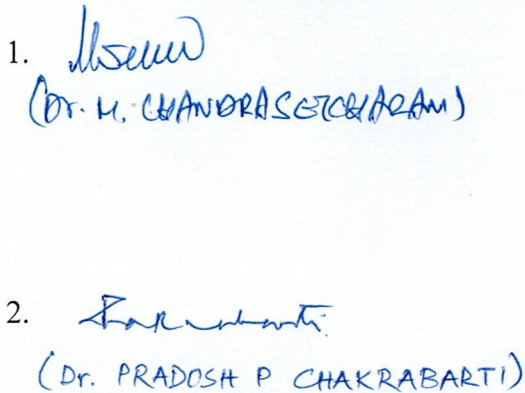 1.
(Dr. M. CHANDRASEKHARAM)
2.
(Dr. PRADOSH P CHAKRABARTI)